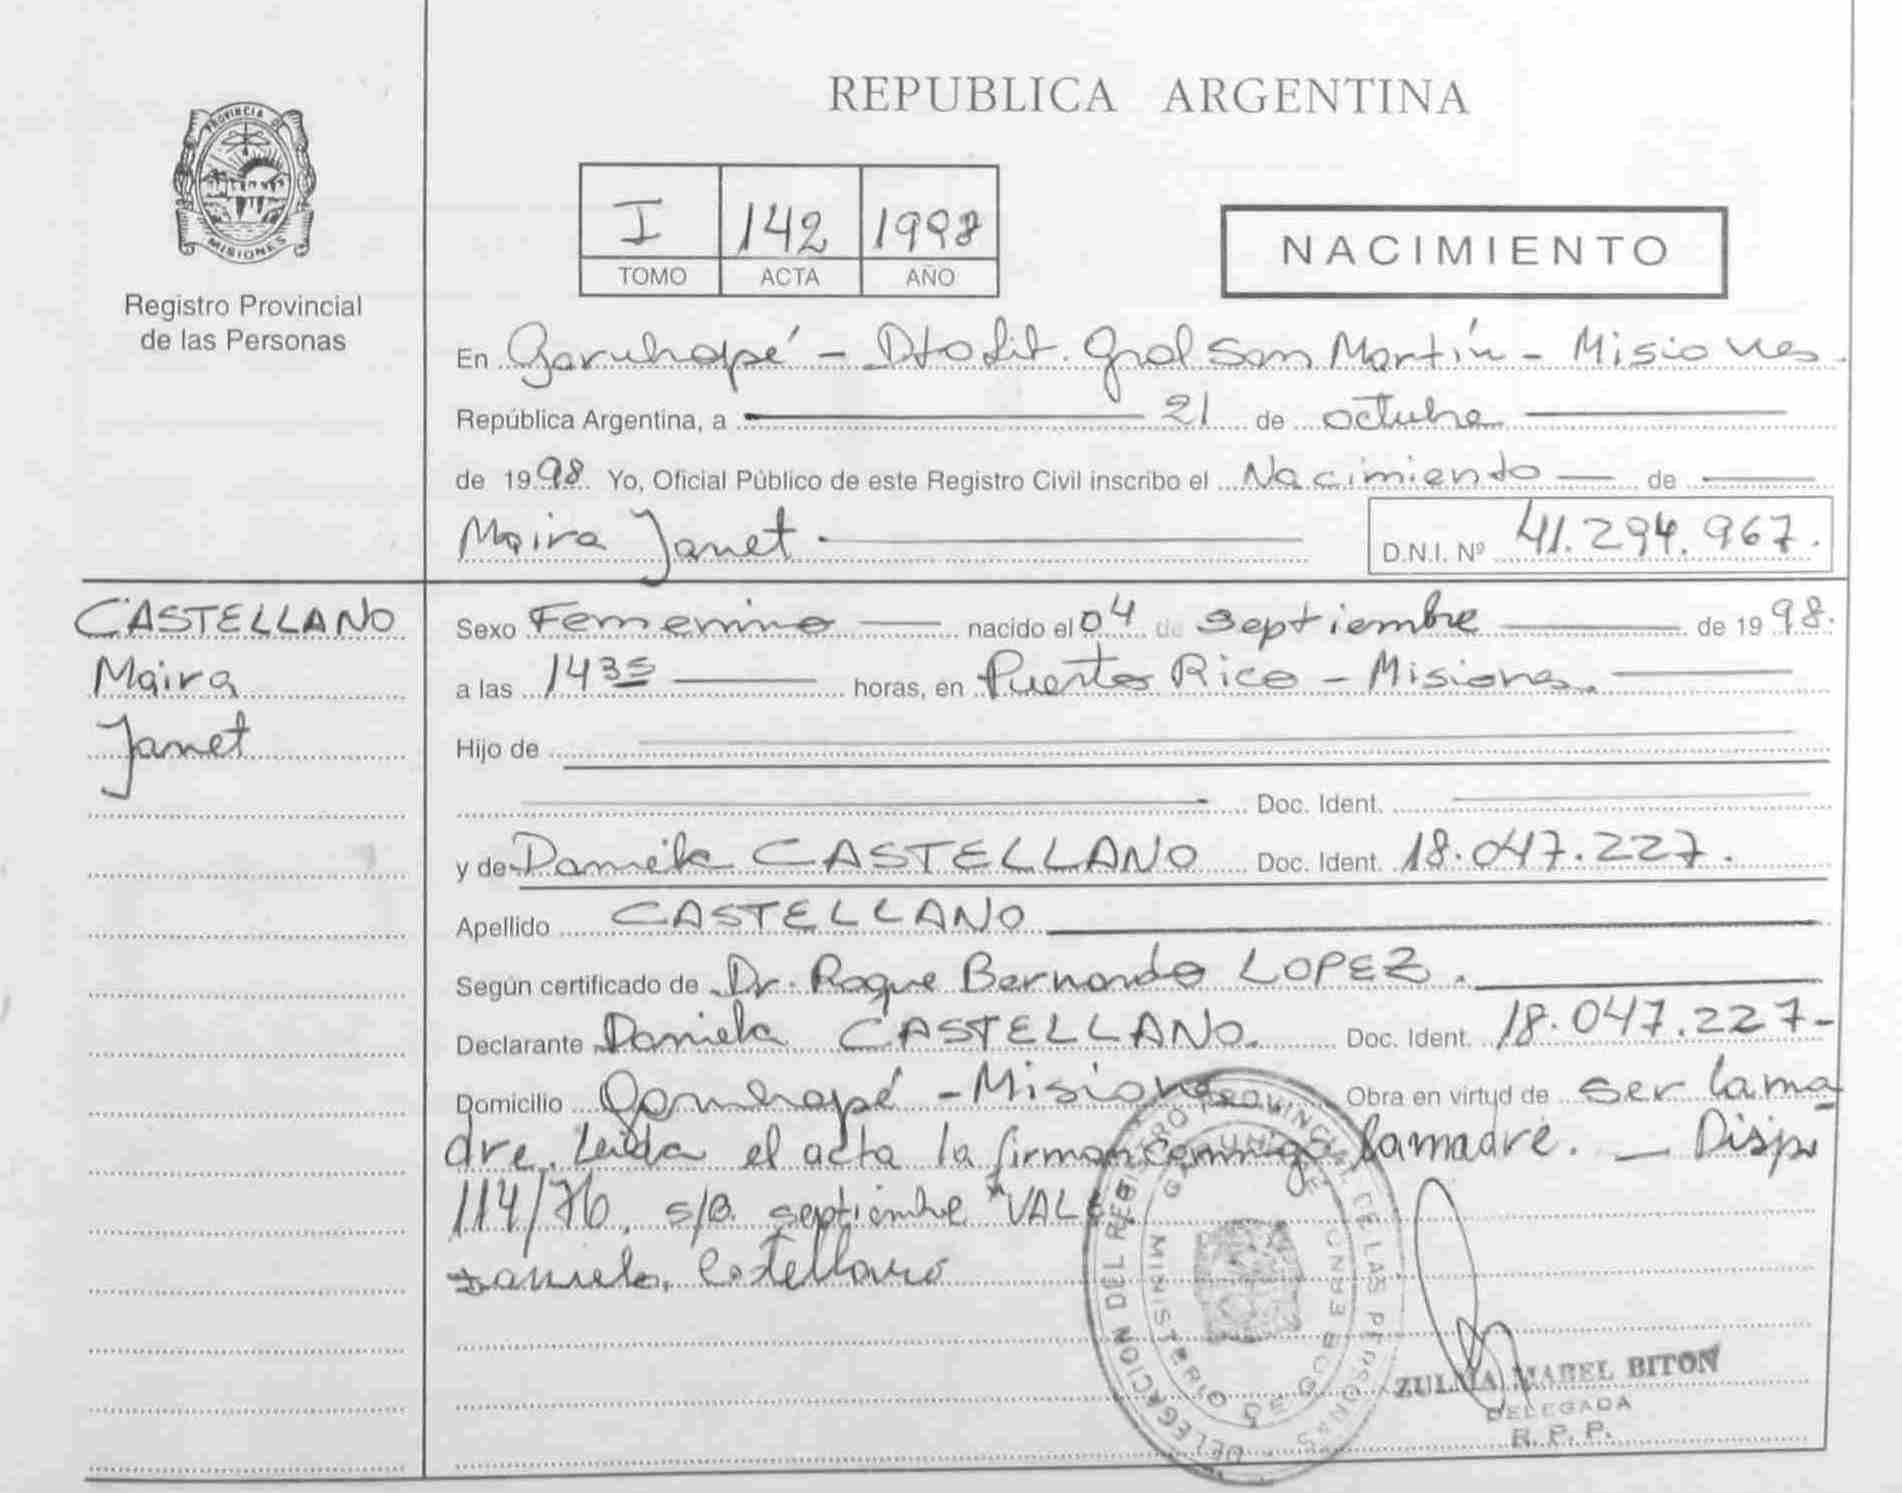 REPUBLICA ARGENTINA
PROVINCIA DE
MISIONES
Registro Provincial
de las Personas
I 142 1998
TOMO ACTA AÑO
NACIMIENTO
En Garuhapé - Dto Lib. Gral San Martín - Misiones.
República Argentina, a 21 de octubre
de 1998. Yo, Oficial Público de este Registro Civil inscribo el Nacimiento de
Maira Janet D.N.I. Nº 41.294.967.
CASTELLANO
Maira
Janet
Sexo Femenino nacido el 04 de septiembre de 1998.
a las 1435 horas, en Puerto Rico - Misiones.
Hijo de
Doc. Ident.
y de Daniela CASTELLANO Doc. Ident. 18.047.227.
Apellido CASTELLANO
Según certificado de Dr. Roque Bernardo LOPEZ.
Declarante Daniela CASTELLANO. Doc. Ident. 18.047.227-
Domicilio Garuhapé - Misiones Obra en virtud de ser la ma
dre. Leida el acta la firman conmigo la madre. - Disp.
114/76. s/B. septiembre "VALE"
Daniela, Castellano
DELEGACION DEL REGISTRO PROVINCIAL DE LAS PERSONAS
MINISTERIO DE GOBIERNO
GARUHAPE
ZULMA MABEL BITON
DELEGADA
R. P. P.